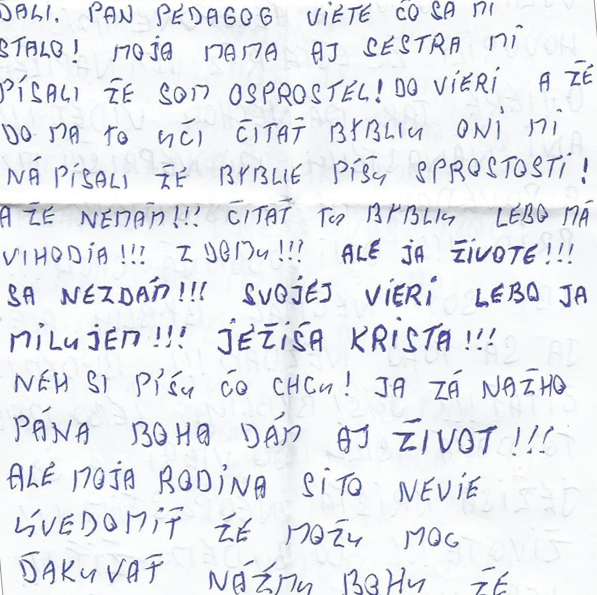 ĎALI. PAN PEDAGOG VIETE ČO SA MI
STALO! MOJA MAMA AJ SESTRA MI
PÍSALI ŽE SOM OSPROSTEL! DO VIERI A ŽE
DO MA TO UČI ČITAŤ BYBLIU ONI MI
NÁ PÍSALI ŽE BYBLIE PÍŠU SPROSTOSTI!
A ŽE NEMÁM!!! ČITAŤ TU BYBLIU LEBO MÁ
VIHODIA!!! Z DOMU!!! ALE JA ŽIVOTE!!!
SA NEZDÁM!!! SVOJEJ VIERI LEBO JA
MILUJEM!!! JEŽIŠA KRISTA!!!
NEH SI PÍŠU ČO CHCU! JA ZÁ NAŽHO
PÁNA BOHA DAM AJ ŽIVOT!!!
ALE MOJA RODINA SITO NEVIE
ÚVEDOMIŤ ŽE MOŽU MOC
ĎAKUVAŤ NÁŽMU BOHU ŽE